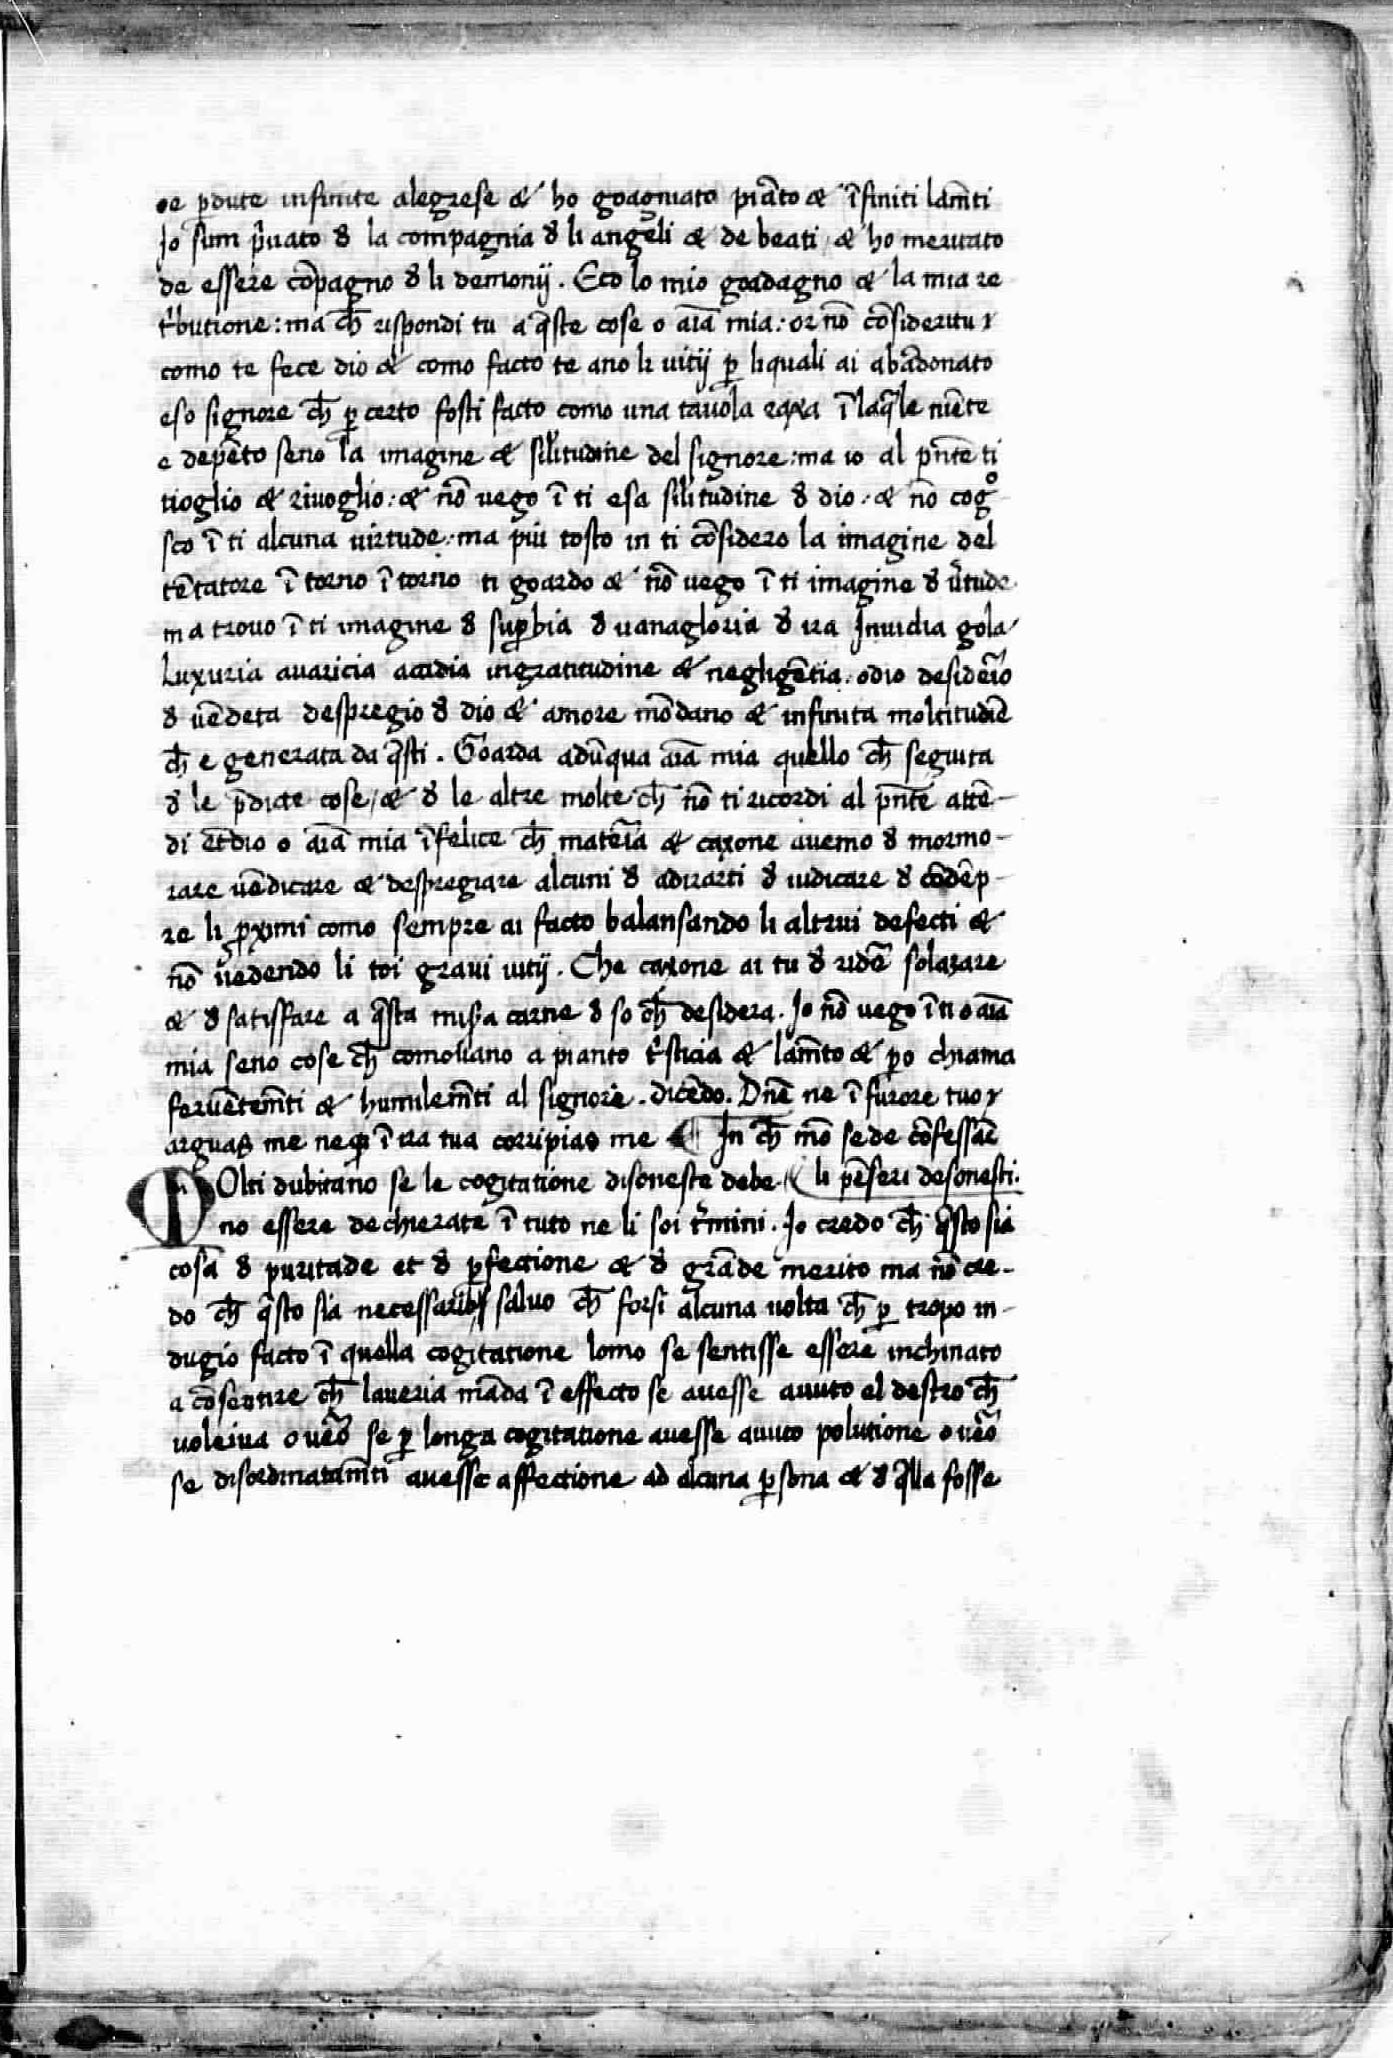 oe p̄dute infinite alegrese & ho goagniato piāto & īfiniti lam̄ti
Jo sum p̄uato đ la compagnia đ li angeli & de beati & ho meruato
de essere cōpagno đ li demonij. Eco lo mio goadagno & la mia re
t̄butione: ma ch̄ rispondi tu a q̄ste cose o aīa mia: or nō cōsideritu
como te fece dio & como facto te ano li uitij p̄ liquali ai abādonato
eso signore ch̄ p̄ certo fosti facto como una tauola raxa ī laq̄le niēte
e depēto seno la imagine & sil̄itudine del signore: ma io al p̄nte ti
uoglio & riuoglio: & nō uego ī ti esa silitudine đ dio: & nō cog°
sco ī ti alcuna uirtude: ma piu tosto in ti cōsidero la imagine del
tētatore ī torno ī torno ti goardo & nō uego ī ti imagine đ ūtude
ma trouo ī ti imagine đ sup̄bia đ uanagloria đ ira Jnuidia gola
Luxuria auaricia accidia ingratitudine & negligētia. odio desideīo
đ uēdeta despregio đ dio & amore mōdano & infinita moltitudīe
ch̄ e generata da q̄sti. Goarda adūqua aīa mia quello ch̄ seguita
đ le p̄dicte cose / & đ le altre molte ch̄ nō ti ricordi al p̄nte attē-
di et̄dio o aīa mia īfelice ch̄ mateīa & caxone auemo đ mormo-
rare uēdicare & despregiare alcuni đ adirarti đ iudicare đ cōdēp-
re li p̄ximi como sempre ai facto balansando li altrui defecti &
nō uedendo li toi graui uitij. Che caxone ai tu đ ridē solazare
& đ satisffare a q̄sta mis̄a carne đ so ch̄ desidera. Jo nō uego ī ti o aīa
mia seno cose ch̄ comouano a pianto t̄sticia & lam̄to & p̄o chiama
feruētem̄ti & humilem̄ti al signore. dicēdo. Dn̄e ne ī furore tuo
arguas me neq̄ ī ira tua corripias me ¶ Jn ch̄ mō se de cōfessar̄
li pēseri desonesti.
MOlti dubitano se le cogitatione disoneste debe
no essere dechierate ī tuto ne li soi t̄mini. Jo credo ch̄ q̄sto sia
cosa đ puritade et đ p̄fectione & đ grāde merito ma nō cre-
do ch̄ q̄sto sia necessario salvo ch̄ forsi alcuna uolta ch̄ p̄ tropo in-
dugio facto ī quella cogitatione lomo se sentisse essere inchinato
a cōsentire ch̄ laueria māda ī effecto se auesse auuto el destro ch̄
uoleiua o uēo se p̄ longa cogitatione auesse auuto polutione o uēo
se disordinatam̄ti auesse affectione ad alcuna p̄sona & đ q̄lla fosse